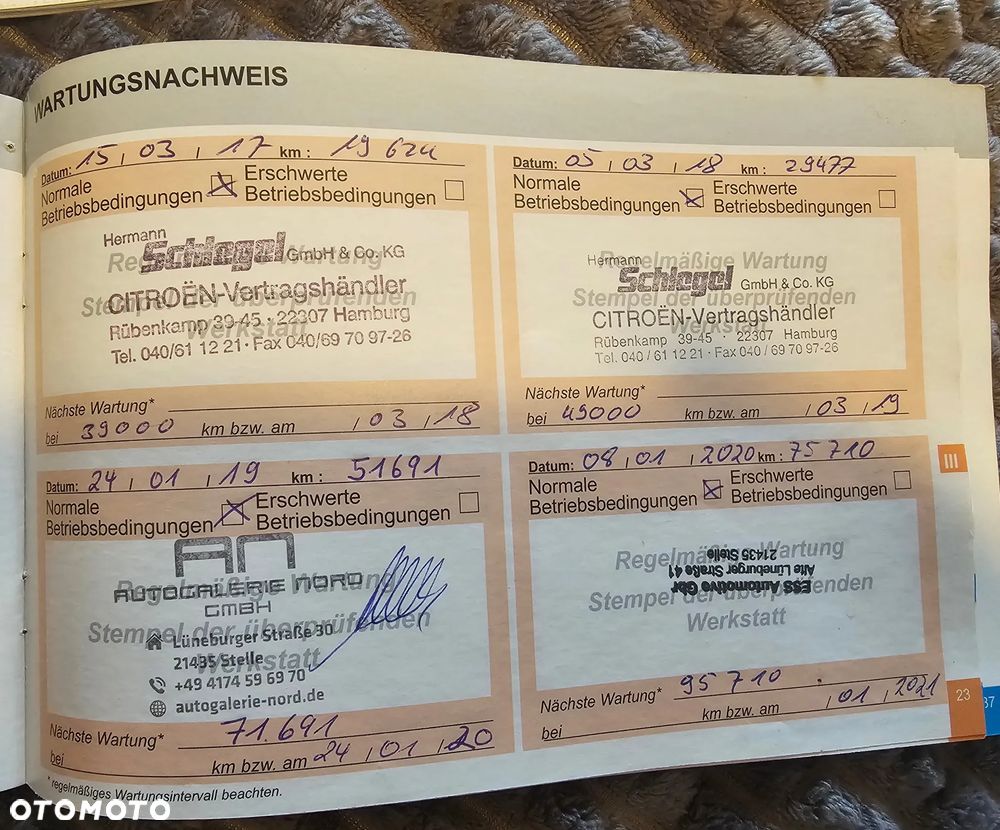 WARTUNGSNACHWEIS
Datum: 15 / 03 / 17 km : 19 624
Normale
Betriebsbedingungen
Erschwerte
Betriebsbedingungen
Hermann
Schlegel GmbH & Co. KG
CITROËN-Vertragshändler
Rübenkamp 39-45 · 22307 Hamburg
Tel. 040/61 12 21 · Fax 040/69 70 97-26
Regelmäßige Wartung
Stempel der überprüfenden
Werkstatt
Nächste Wartung*
bei 39000 km bzw. am / 03 / 18
Datum: 05 / 03 / 18 km : 29477
Normale
Betriebsbedingungen
Erschwerte
Betriebsbedingungen
Hermann
Schlegel GmbH & Co. KG
CITROËN-Vertragshändler
Rübenkamp 39-45 · 22307 Hamburg
Tel. 040 / 61 12 21 · Fax 040 / 69 70 97-26
Regelmäßige Wartung
Stempel der überprüfenden
Werkstatt
Nächste Wartung*
bei 49000 km bzw. am / 03 / 19
Datum: 24 / 01 / 19 km : 51691
Normale
Betriebsbedingungen
Erschwerte
Betriebsbedingungen
AN
AUTOGALERIE NORD
GMBH
Lüneburger Straße 30
21435 Stelle
+49 4174 59 69 70
autogalerie-nord.de
Regelmäßige Wartung
Stempel der überprüfenden
Werkstatt
Nächste Wartung* 71.691
bei km bzw. am 24 / 01 / 20
Datum: 08 / 01 / 2020 km : 75 710
Normale
Betriebsbedingungen
Erschwerte
Betriebsbedingungen
ESS Automotive Gbr
Alte Lüneburger Straße 41
21435 Stelle
Regelmäßige Wartung
Stempel der überprüfenden
Werkstatt
Nächste Wartung* 95 710
bei km bzw. am / 01 / 2021
* regelmäßiges Wartungsintervall beachten.
III
23
37
OTOMOTO